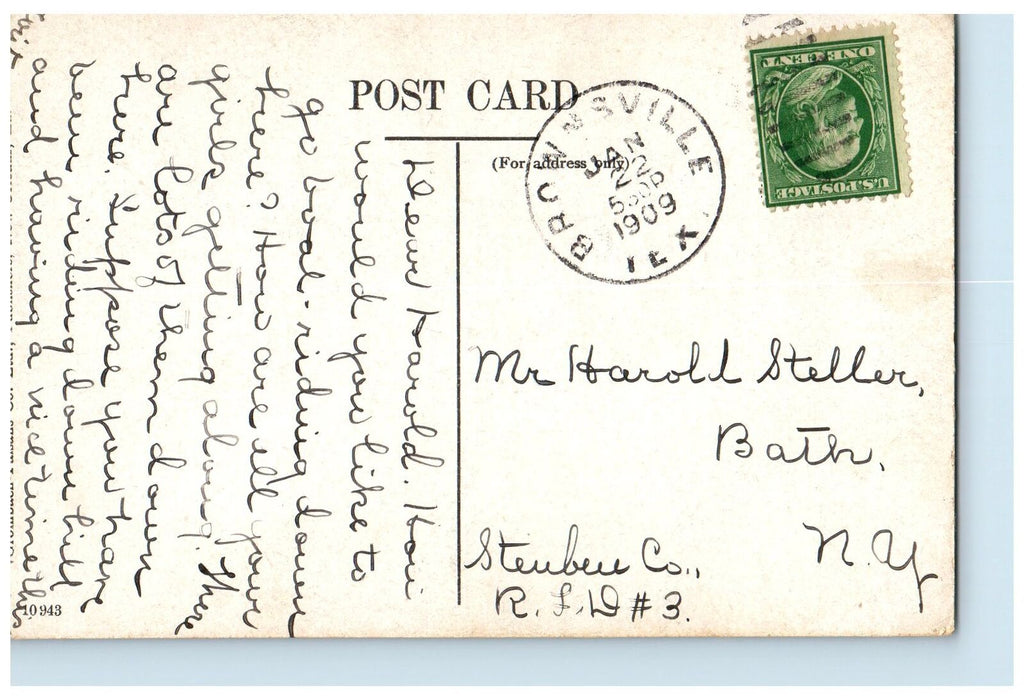 POST CARD
(For address only)
BROWNSVILLE
JAN
22
530P
1909
TEX.
ONE CENT
U.S. POSTAGE
Mr Harold Steller,
Bath,
N.Y
Steuben Co.,
R.F.D #3.
Dear Harold. How
would you like to
go boat-riding down
here? How are all your
girls getting along. There
are lots of them down
here. Suppose you have
been riding down hill
and having a nice time this
10943